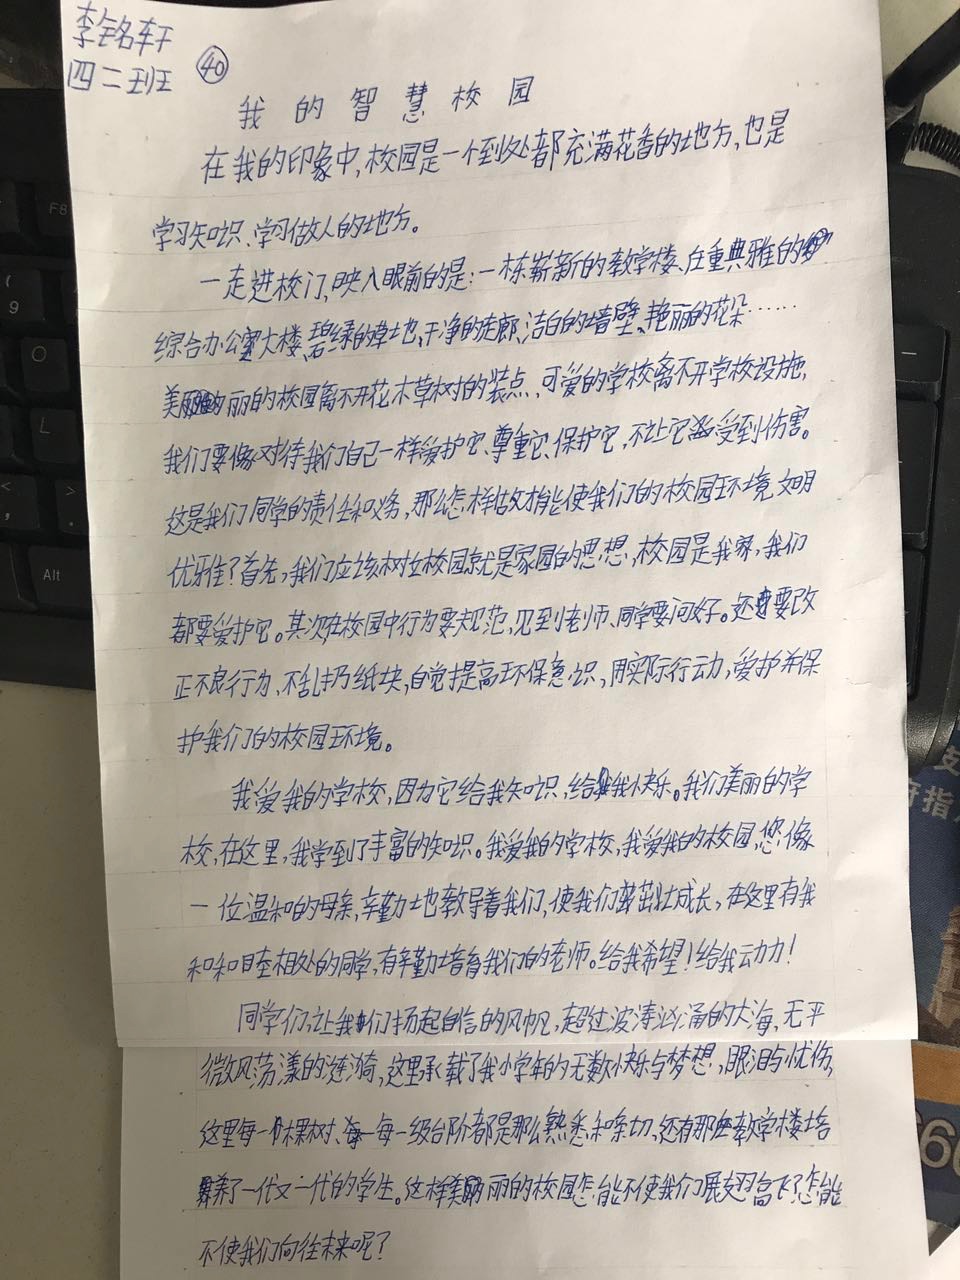 李铭轩
四二班
40
我的智慧校园
在我的印象中,校园是一个到处都充满花香的地方,也是
学习知识、学习做人的地方。
一走进校门,映入眼前的是:一栋崭新的教学楼、庄重典雅的
综合办公室大楼、碧绿的草地、干净的走廊、洁白的墙壁、艳丽的花朵……
美丽的校园离不开花木草树的装点,可爱的学校离不开学校设施,
我们要像对待我们自己一样爱护它、尊重它、保护它,不让它受到伤害。
这是我们同学的责任和义务,那么怎样做才能使我们的校园环境文明
优雅?首先,我们应该树立校园就是家园的思想,校园是我家,我们
都要爱护它。其次在校园中行为要规范,见到老师、同学要问好。还要改
正不良行为,不乱扔纸块,自觉提高环保意识,用实际行动,爱护并保
护我们的校园环境。
我爱我的学校,因为它给我知识,给我快乐。我们美丽的学
校,在这里,我学到了丰富的知识。我爱我的学校,我爱我的校园,您像
一位温和的母亲,辛勤地教导着我们,使我们茁壮成长,在这里有我
和和睦相处的同学,有辛勤培育我们的老师。给我希望!给我动力!
同学们,让我们扬起自信的风帆,超过波涛汹涌的大海,无平
微风荡漾的涟漪,这里承载了我小学年的无数快乐与梦想,眼泪与忧伤,
这里每一棵树、每一级台阶都是那么熟悉和亲切,还有那座教学楼培
养了一代又一代的学生。这样美丽的校园怎能不使我们展翅高飞?怎能
不使我们向往未来呢?
支
府指
66
F8
(
9
O
L
<
,
>
.
Alt